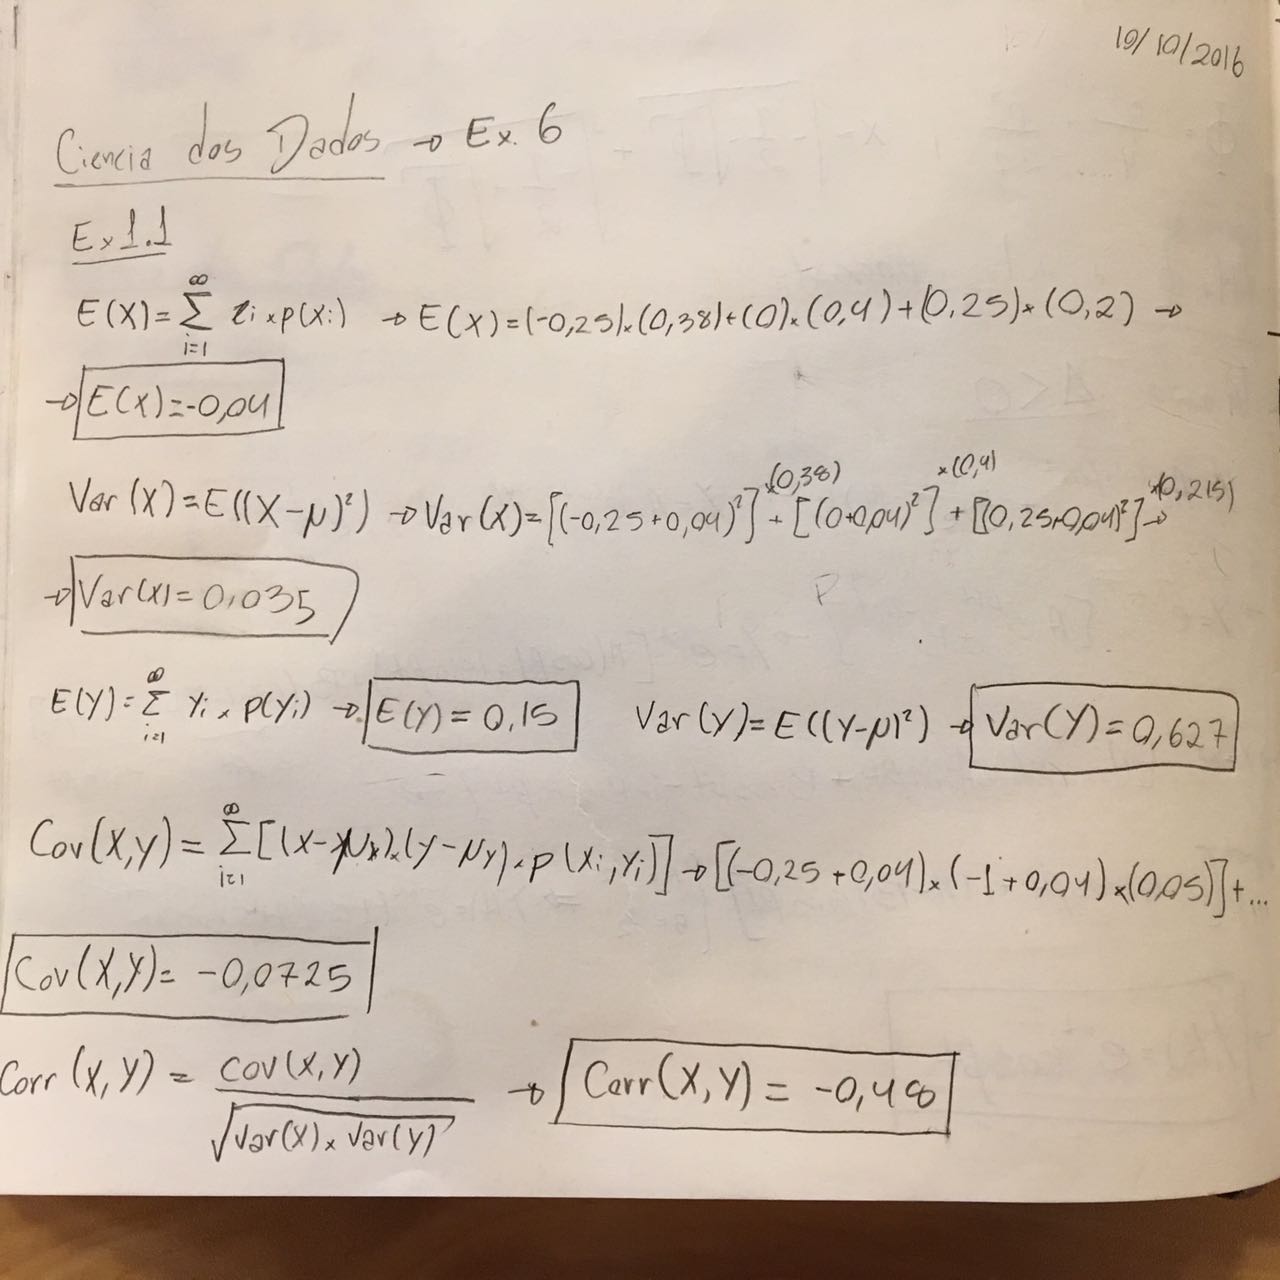 19/10/2016
Ciencia dos Dados → Ex. 6
Ex 1.1
E(X) = ∞ Σ i=1 xi × p(xi) → E(X) = (-0,25)×(0,38)+(0)×(0,4)+(0,25)×(0,2) →
→ E(X) = -0,04
Var(X) = E((X-μ)²) → Var(X) = [(-0,25+0,04)²]×(0,38) + [(0+0,04)²]×(0,4) + [(0,25+0,04)²]×(0,215) →
→ Var(X) = 0,035
E(Y) = ∞ Σ i=1 yi × p(yi) → E(Y) = 0,15 Var(Y) = E((Y-μ)²) → Var(Y) = 0,627
Cov(X,Y) = ∞ Σ i=1 [(x-μx)×(y-μy)×p(xi,yi)] → [(-0,25+0,04)×(-1+0,04)×(0,05)]+...
Cov(X,Y) = -0,0725
Corr(X,Y) = cov(X,Y) / √Var(X)×Var(Y) → Corr(X,Y) = -0,48